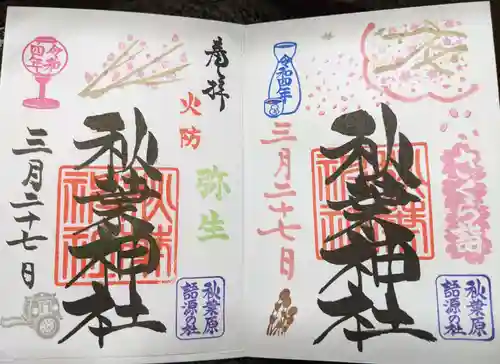 奉拝
火防
秋葉神社
弥生
令和四年
三月二十七日
秋葉原
語源の社
さくら詣
秋葉神社
令和四年
三月二十七日
秋葉原
語源の社